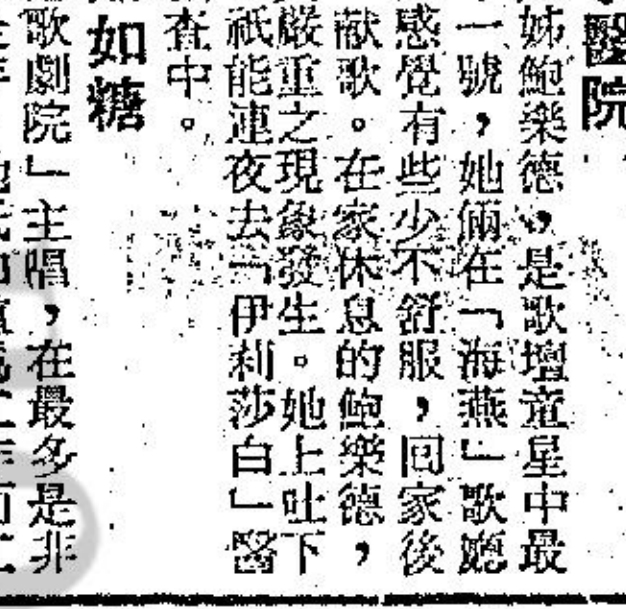 醫院
姊鮑樂德，是歌壇童星中最
一號，她倆在「海燕」歌廳
感覺有些少不舒服，回家後
献歌。在家休息的鮑樂德，
嚴重之現象發生。她上吐下
祇能連夜去「伊利莎白」醫
查中。
如糖
歌劇院」主唱，在最多是非